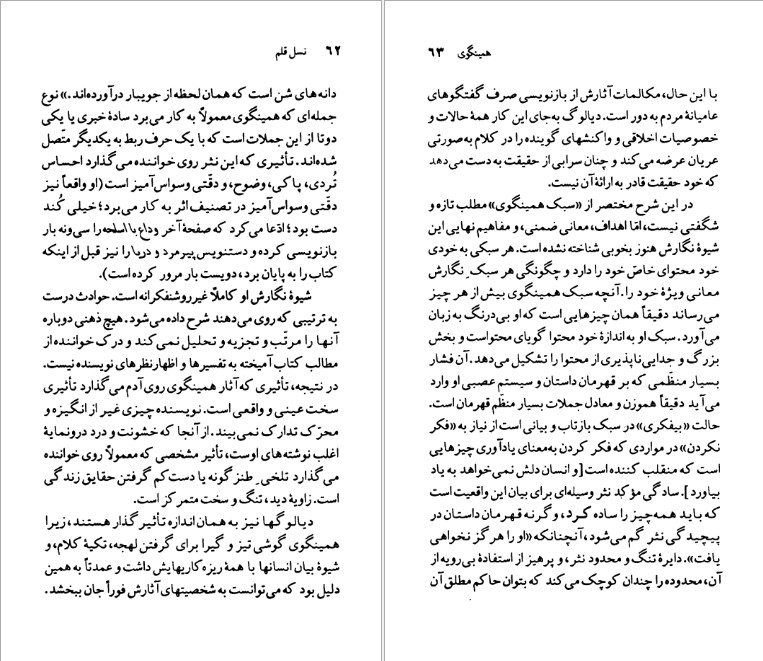 ۶۲ نسل قلم
دانه‌های شن است که همان لحظه از جویبار درآورده‌اند.» نوع
جمله‌ای که همینگوی معمولاً به کار می‌برد سادهٔ خبری یا یکی
دوتا از این جملات است که با یک حرف ربط به یکدیگر متّصل
شده‌اند. تأثیری که این نثر روی خواننده می‌گذارد احساس
تُردی، پاکی، وضوح، و دقّتی وسواس‌آمیز است (او واقعاً نیز
دقّتی وسواس‌آمیز در تصنیف اثر به کار می‌برد؛ خیلی کُند
دست بود؛ ادّعا می‌کرد که صفحهٔ آخر وداع با اسلحه را سی‌ونه بار
بازنویسی کرده و دستنویس پیرمرد و دریا را نیز قبل از اینکه
کتاب را به پایان برد، دویست بار مرور کرده است).
شیوهٔ نگارش او کاملاً غیرروشنفکرانه است. حوادث درست
به ترتیبی که روی می‌دهند شرح داده می‌شود. هیچ ذهنی دوباره
آنها را مرتّب و تجزیه و تحلیل نمی‌کند و درک خواننده از
مطالب کتاب آمیخته به تفسیرها و اظهارنظرهای نویسنده نیست.
در نتیجه، تأثیری که آثار همینگوی روی آدم می‌گذارد تأثیری
سخت عینی و واقعی است. نویسنده چیزی غیر از انگیزه و
محرّک تدارک نمی‌بیند. از آنجا که خشونت و درد درونمایهٔ
اغلب نوشته‌های اوست، تأثیر مشخصی که معمولاً روی خواننده
می‌گذارد تلخی ِ طنزگونه یا دست‌کم گرفتن حقایق زندگی
است. زاویهٔ دید، تنگ و سخت متمرکز است.
دیالوگها نیز به همان اندازه تأثیرگذار هستند، زیرا
همینگوی گوشی تیز و گیرا برای گرفتن لهجه، تکیهٔ کلام، و
شیوهٔ بیان انسانها با همهٔ ریزه‌کاریهایش داشت و عمدتاً به همین
دلیل بود که می‌توانست به شخصیتهای آثارش فوراً جان ببخشد.
همینگوی ۶۳
با این حال، مکالمات آثارش از بازنویسی صرف گفتگوهای
عامیانهٔ مردم به دور است. دیالوگ به‌جای این کار همهٔ حالات و
خصوصیات اخلاقی و واکنشهای گوینده را در کلام به‌صورتی
عریان عرضه می‌کند و چنان سرابی از حقیقت به دست می‌دهد
که خود حقیقت قادر به ارائهٔ آن نیست.
در این شرح مختصر از «سبک همینگوی» مطلب تازه و
شگفتی نیست، امّا اهداف، معانی ضمنی، و مفاهیم نهایی این
شیوهٔ نگارش هنوز بخوبی شناخته نشده است. هر سبکی به خودی
خود محتوای خاصّ خود را دارد و چگونگی هر سبک ِ نگارش
معانی ویژهٔ خود را. آنچه سبک همینگوی بیش از هر چیز
می‌رساند دقیقاً همان چیزهایی است که او بی‌درنگ به زبان
می‌آورد. سبک او به اندازهٔ خود محتوا گویای محتواست و بخش
بزرگ و جدایی‌ناپذیری از محتوا را تشکیل می‌دهد. آن فشار
بسیار منظّمی که بر قهرمان داستان و سیستم عصبی او وارد
می‌آید دقیقاً هموزن و معادل جملات بسیار منظّم قهرمان است.
حالت «بیفکری» در سبک بازتاب و بیانی است از نیاز به «فکر
نکردن» در مواردی که فکر کردن به‌معنای یادآوری چیزهایی
است که منقلب کننده است [و انسان دلش نمی‌خواهد به یاد
بیاورد]. سادگی مؤکد نثر وسیله‌ای برای بیان این واقعیت است
که باید همه‌چیز را ساده کرد، و گرنه قهرمان داستان در
پیچیدگی نثر گم می‌شود، آنچنانکه «او را هرگز نخواهی
یافت». دایرهٔ تنگ و محدود نثر، و پرهیز از استفادهٔ بی‌رویه از
آن، محدوده را چندان کوچک می‌کند که بتوان حاکم مطلق آن